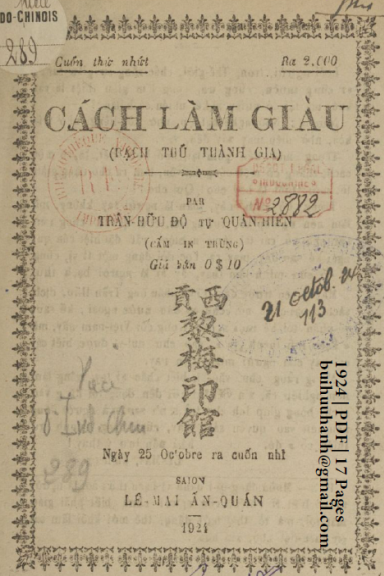 DO-CHINOIS
289
Cuốn thứ nhứt
Ra 2.000
CÁCH LÀM GIÀU
(BẠCH THỦ THÀNH GIA)
PAR
TRẦN-HỮU-ĐỘ TỰ QUÂN-HIẾN
(CẤM IN TRÙNG)
No 2882
Giá bán 0$10
西貢
黎梅印館
21 octob. 24
113
289
Ngày 25 Octobre ra cuốn nhì
SAIGON
LÊ-MAI ẤN-QUÁN
1924
1924 | PDF | 17 Pages
buihuuhanh@gmail.com